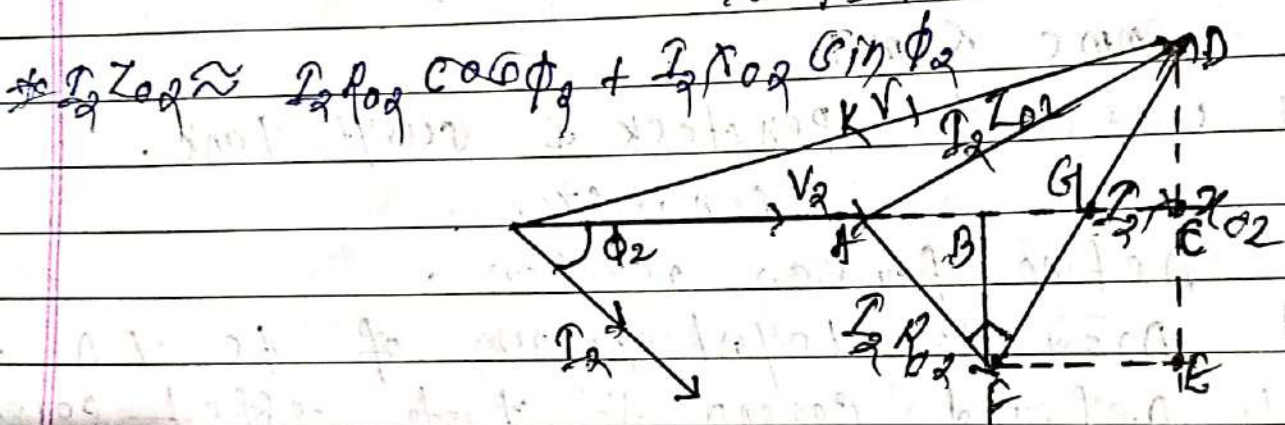 * I₂Z₀₂ ≈ I₂R₀₂ cosϕ₂ + I₂X₀₂ sin ϕ₂
D
K V₁
I₂ Z₀₂
V₂
G
I₂ X₀₂
ϕ₂
A
B
C
I₂
I₂ R₀₂
F
E